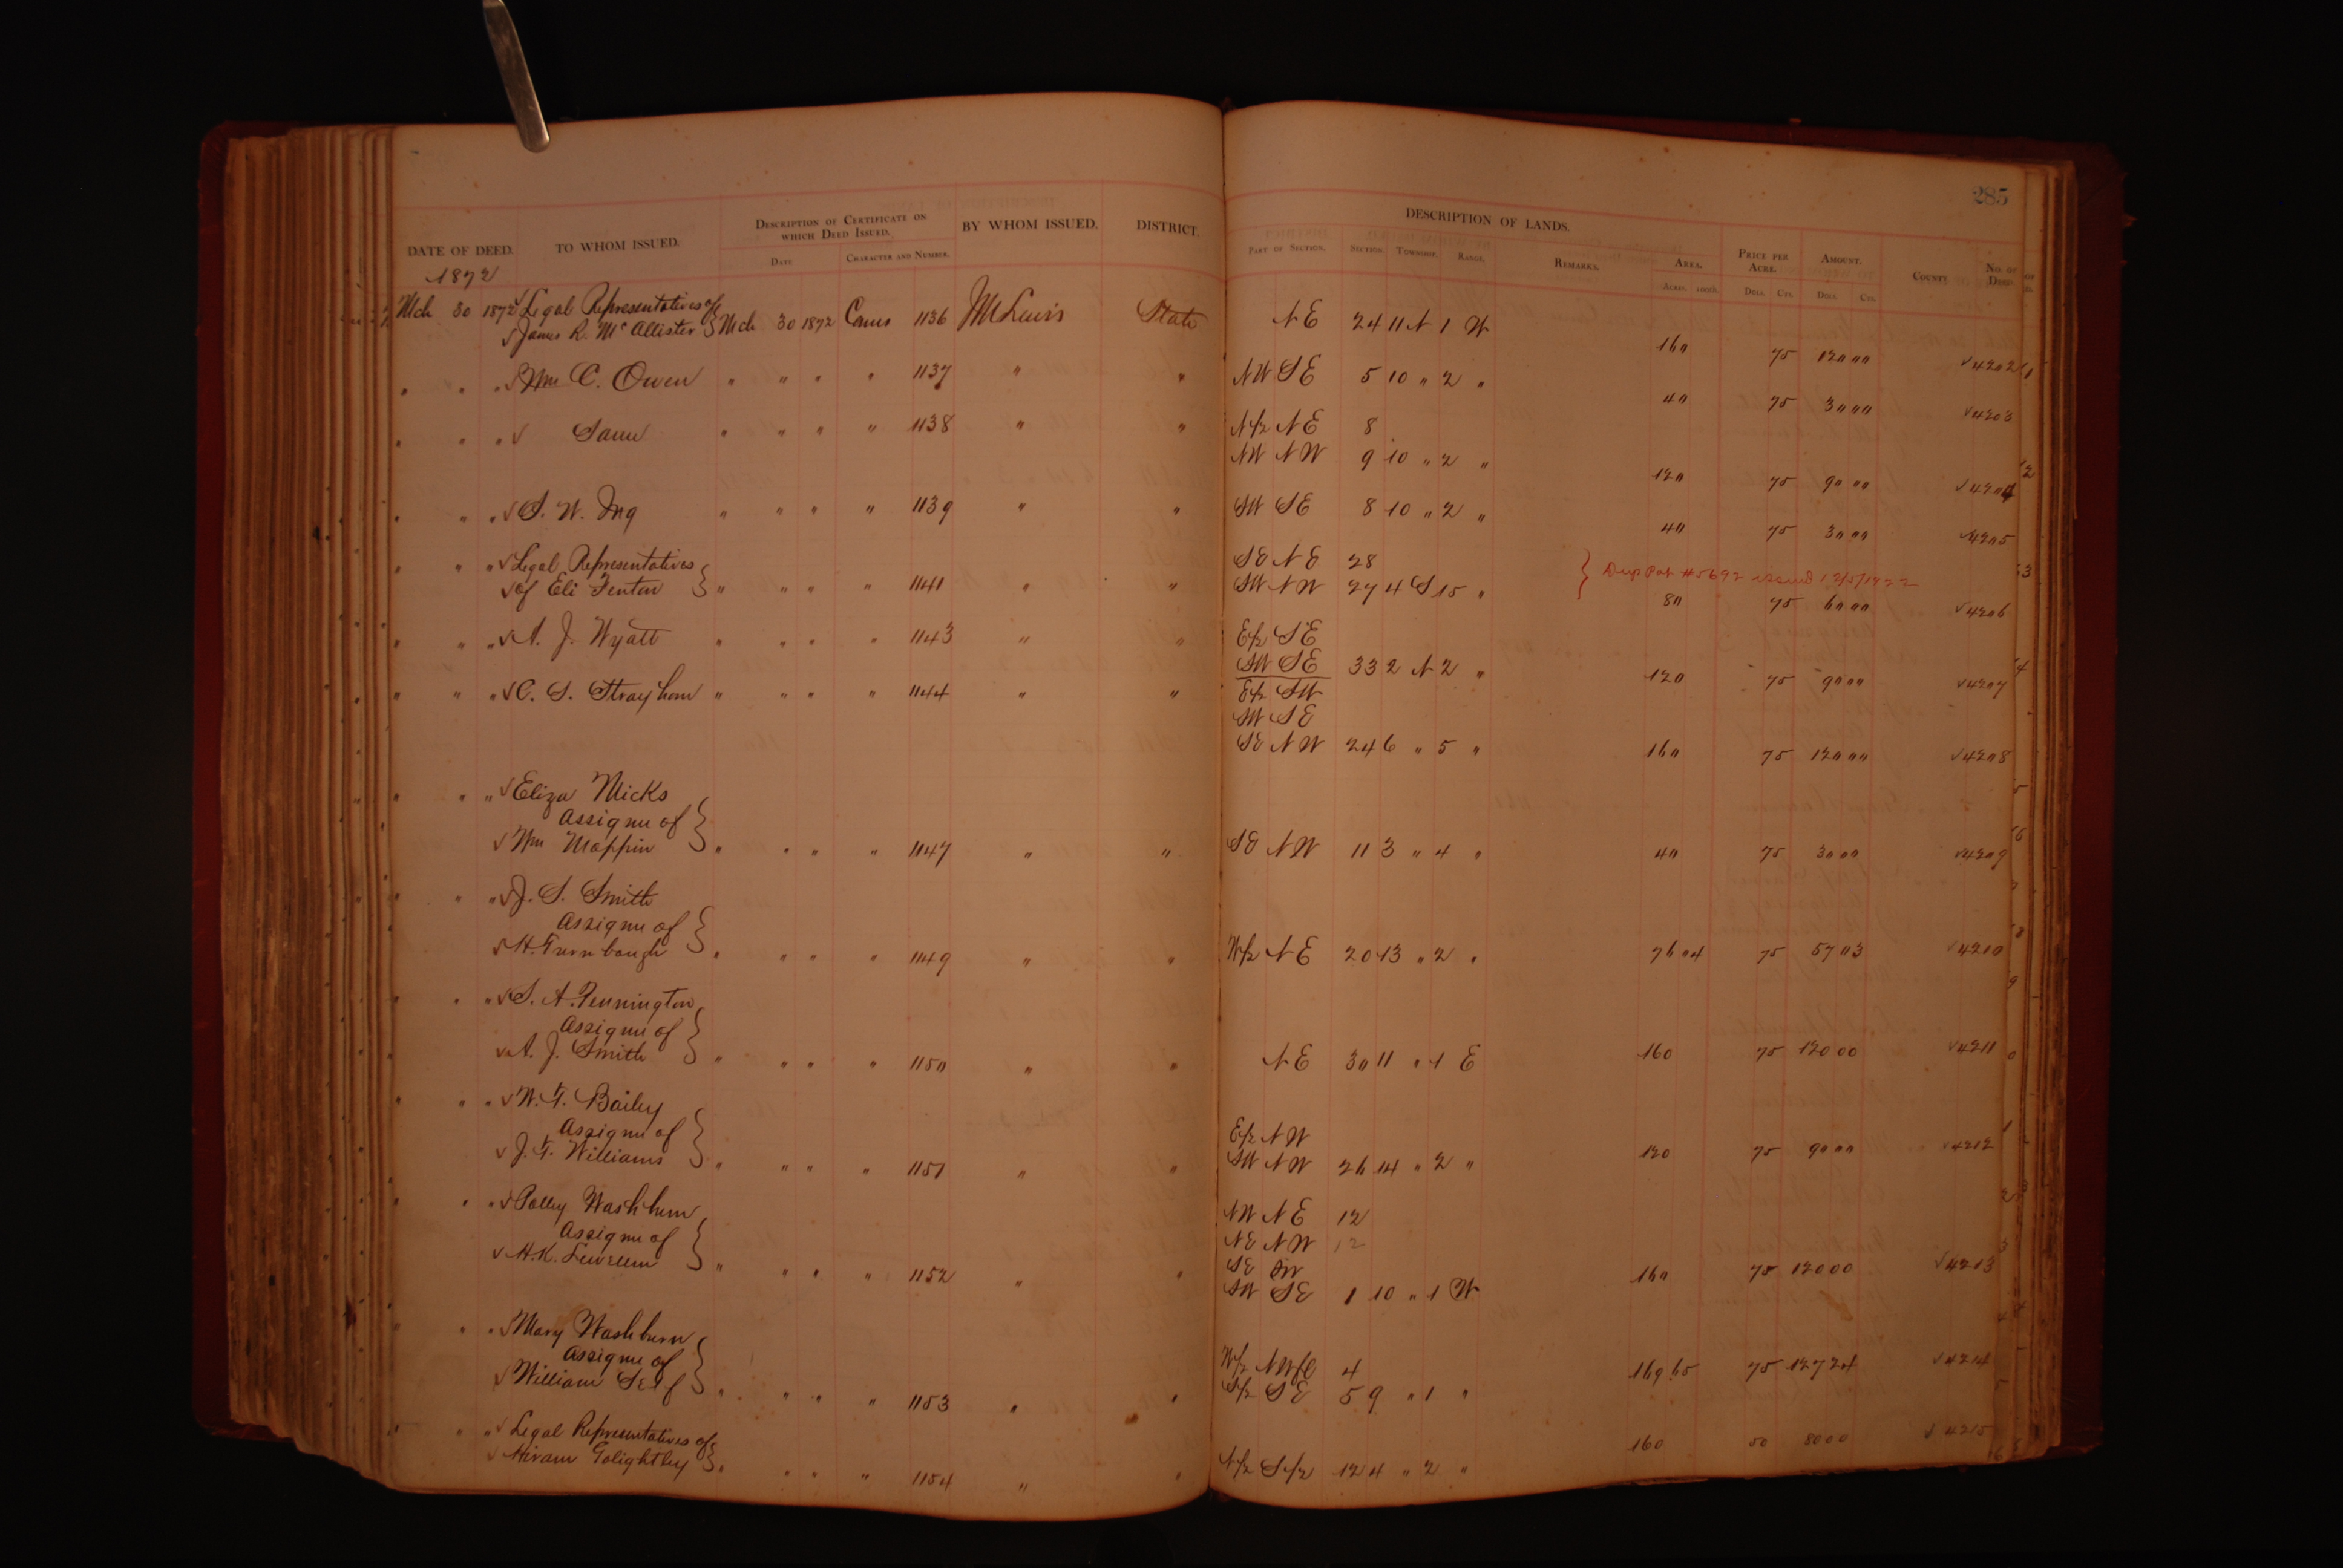 285
DATE OF DEED. TO WHOM ISSUED. DESCRIPTION OF CERTIFICATE ON WHICH DEED ISSUED. BY WHOM ISSUED. DISTRICT. DESCRIPTION OF LANDS. PRICE PER ACRE. AMOUNT. COUNTY NO. OF DEED.
DATE CHARACTER AND NUMBER. PART OF SECTION. SECTION. TOWNSHIP. RANGE. REMARKS. AREA. ACRES. 100ths. DOLLS. CTS. DOLLS. CTS.
1872
Mch 30 1872 Legal Representatives of
James R. McAllister Mch 30 1872 1136 State NE 24 11 N 1 W 160 75 120 00 4202
" " " Wm C. Owen " " " " 1137 " " NW SE 5 10 " 2 " 40 75 30 00 4203
" " " Same " " " " 1138 " " N 1/2 NE 8
NW NW 9 10 " 2 " 120 75 90 00 4204
" " " S. W. Ing " " " " 1139 " " SW SE 8 10 " 2 " 40 75 30 00 4205
" " " Legal Representatives SE NE 28
of Eli Fenton " " " " 1141 " " SW NW 27 4 S 15 " 80 75 60 00 4206
Dup Pat #5692 issued 12/5/1922
" " " A. J. Wyatt " " " " 1143 " " E 1/2 SE
SW SE 33 2 N 2 " 120 75 90 00 4207
" " " C. S. Strayhorn " " " " 1144 " " E 1/2 SW
SW SE
SE NW 24 6 " 5 " 160 75 120 00 4208
" " " Eliza Micks
Assignee of
Wm Moppin " " " " 1147 " " SE NW 11 3 " 4 " 40 75 30 00 4209
" " " J. S. Smith
Assignee of
H. Turnbough " " " " 1149 " " W 1/2 NE 20 13 " 2 " 76 04 75 57 03 4210
" " " S. A. Pennington
Assignee of
A. J. Smith " " " " 1150 " " NE 30 11 " 1 E 160 75 120 00 4211
" " " W. T. Bailey
Assignee of E 1/2 NW
J. T. Williams " " " " 1151 " " SW NW 26 14 " 2 " 120 75 90 00 4212
" " " Polley Washburn NW NE 12
Assignee of NE NW 12
H. K. SE SW
" " " " 1152 " " SW SE 1 10 " 1 W 160 75 120 00 4213
" " " Mary Washburn
Assignee of W 1/2 4
William Self " " " " 1153 " " S 1/2 SE 5 9 " 1 " 169 65 75 127 24 4214
" " " Legal Representatives of
Hiram Golightley " " " " 1154 " " N 1/2 S 1/2 12 4 " 2 " 160 50 80 00 4215